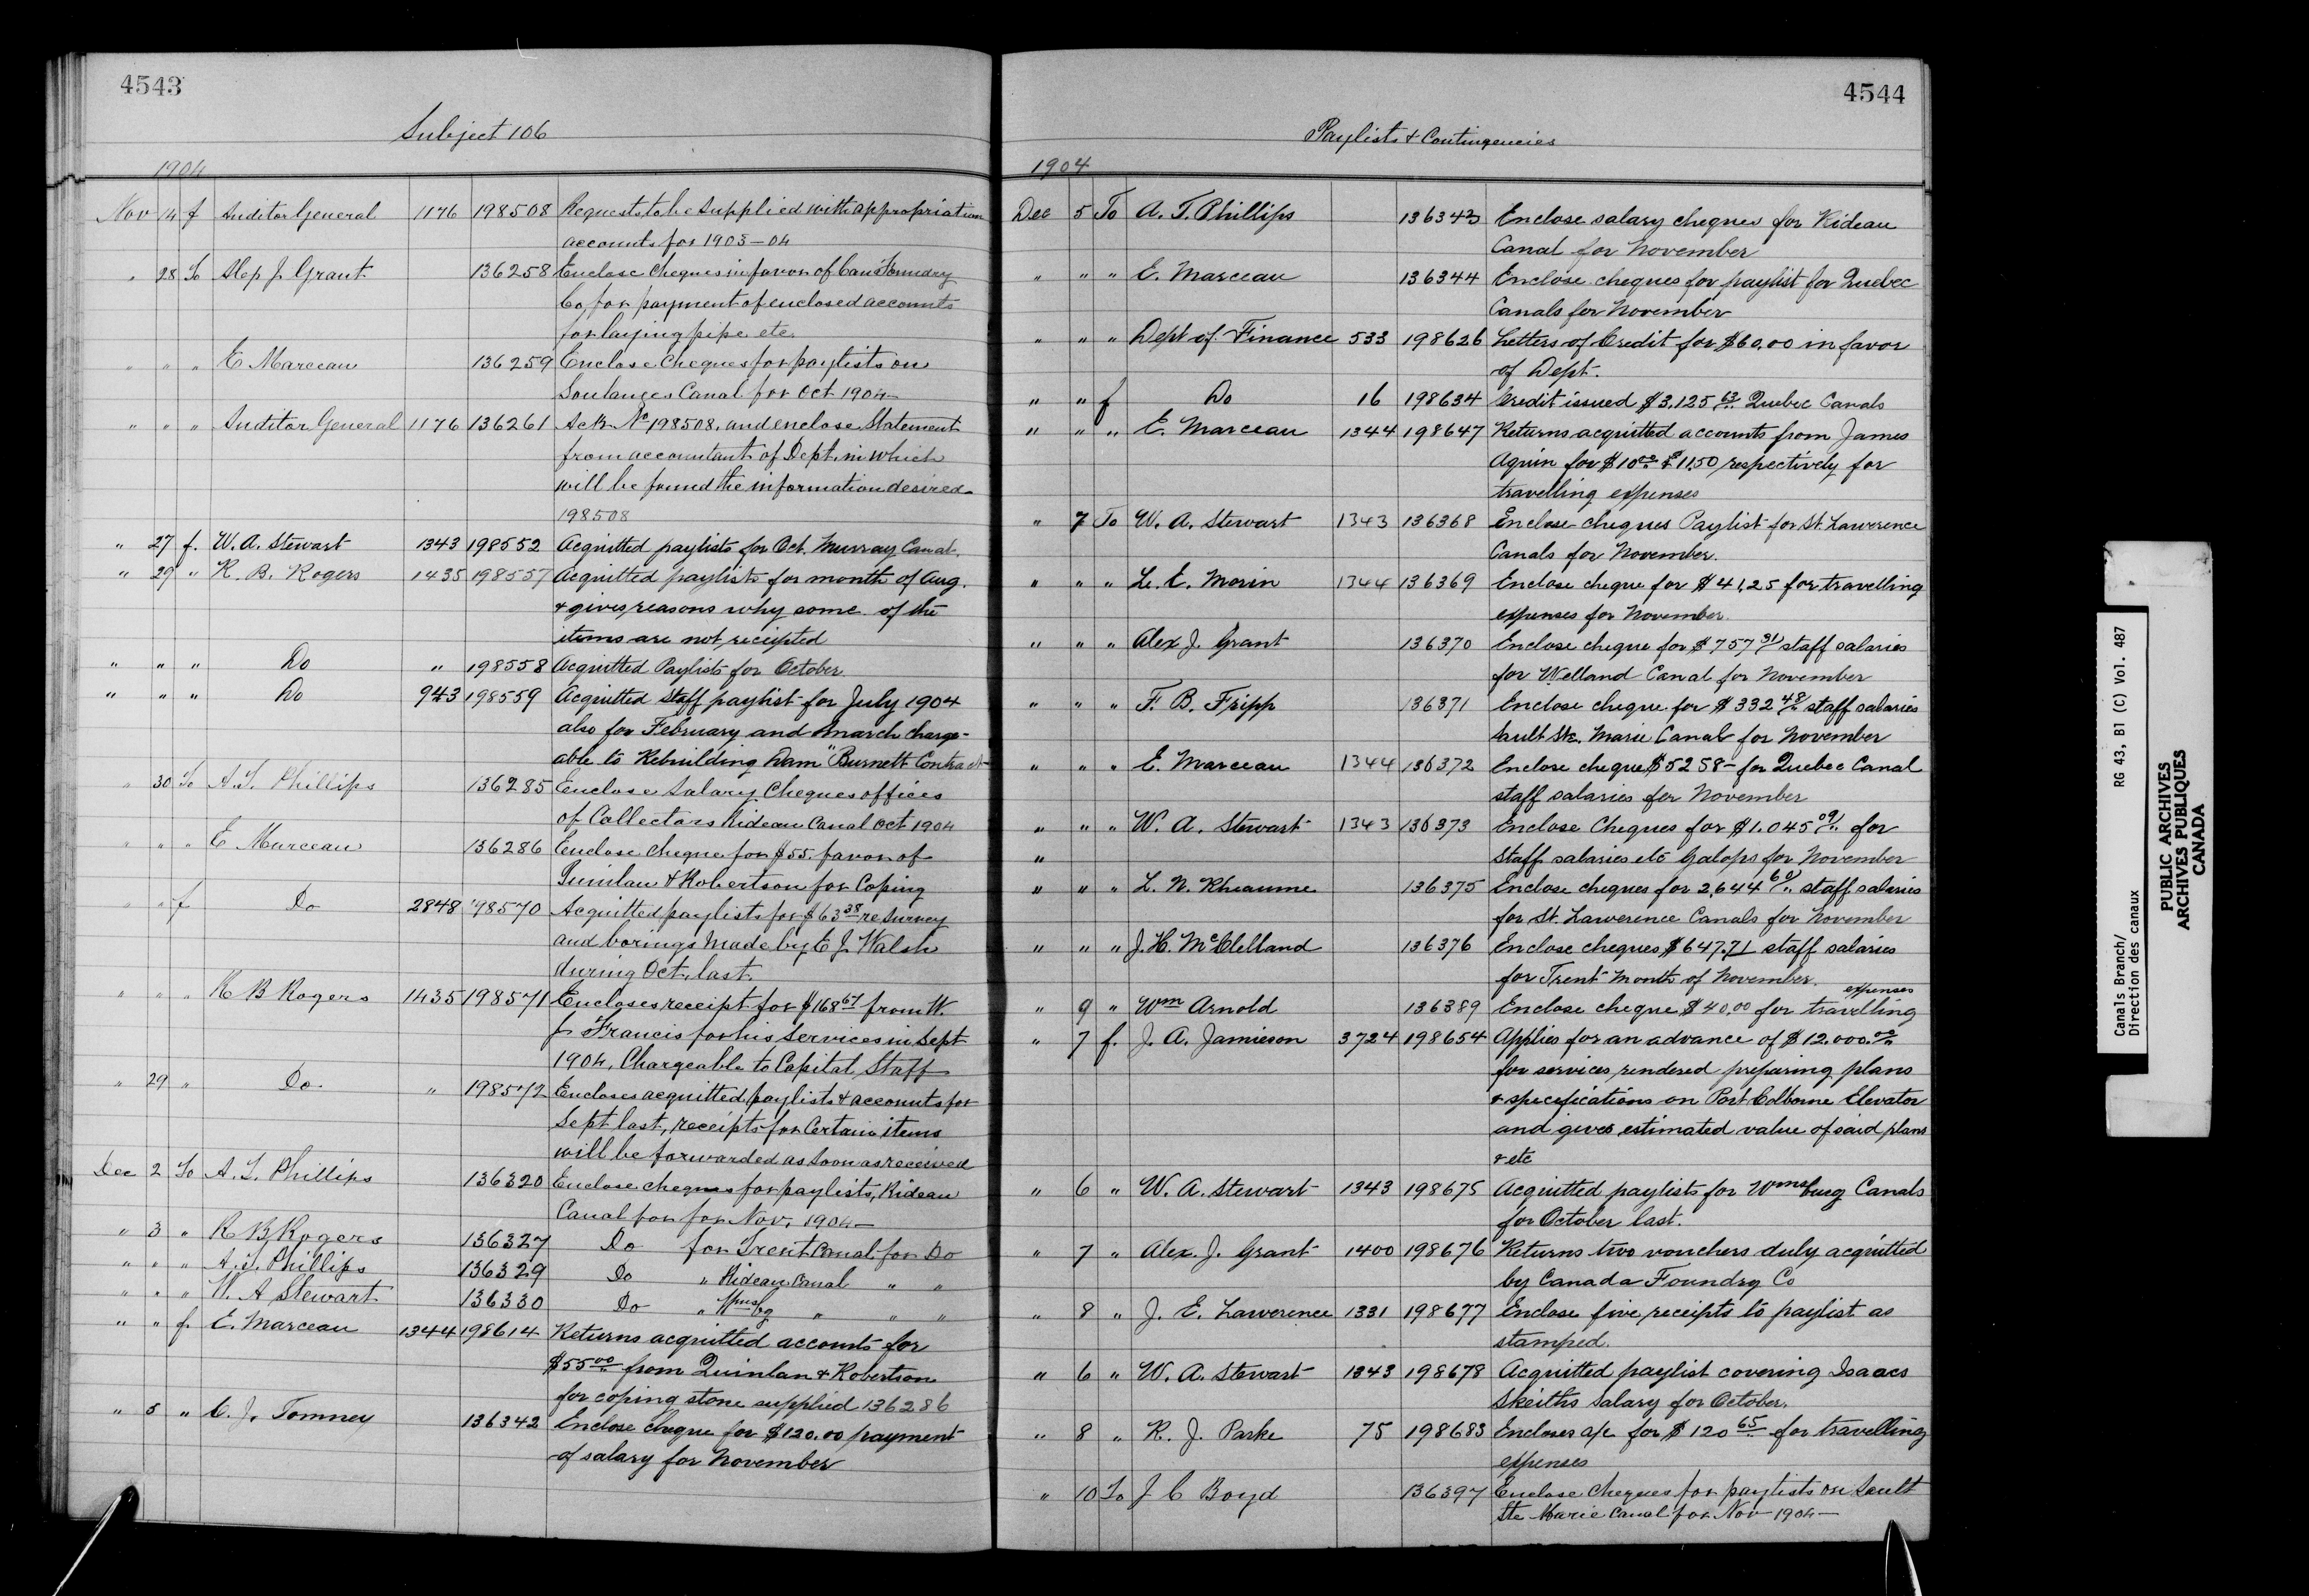 4543
Subject 106
1904
Nov 14 f Auditor General 1176 198508 Requests to be supplied with appropriation
accounts for 1903-04
" 28 To Alex J. Grant 136258 Enclose cheques in favor of Can Foundry
Co, for payment of enclosed accounts
for laying pipe etc.
" " " E Marceau 136259 Enclose Cheques for paylists on
Soulanges Canal for Oct 1904
" " " Auditor General 1176 136261 Ack No 198508, and enclose Statement
from accountant of Dept. in which
will be found the information desired
198508
" 27 f. W. A. Stewart 1343 198552 Acquitted paylists for Oct. Murray Canal
" 29 " R. B. Rogers 1435 198557 Acquitted paylists for month of Aug.
& gives reasons why some of the
items are not receipted
" " " Do " 198558 Acquitted Paylists for October
" " " Do 943 198559 Acquitted staff paylist for July 1904
also for February and March charge-
able to Rebuilding Dam "Burnett Contract
" 30 To A. T. Phillips 136285 Enclose Salary Cheques offices
of Collectors Rideau Canal Oct 1904
" " " E Marceau 136286 Enclose Cheque for $55. favor of
Quinlan & Robertson for Coping
" " f Do 2848 198570 Acquitted paylists for $63 38 re survey
and borings made by E J. Walsh
during Oct. last.
" " " R B Rogers 1435 198571 Encloses receipt for $168 67 from W.
J. Francis for his services in Sept
1904. Chargeable to Capital, Staff
" 29 " Do. " 198572 Encloses acquitted paylists & accounts for
Sept last, receipts for Certain items
will be forwarded as soon as received
Dec 2 To A. T. Phillips 136320 Enclose cheques for paylists, Rideau
Canal for for Nov. 1904-
" 3 " R B Rogers 136327 Do for Trent Canal for Do
" " " A. T. Phillips 136329 Do " Rideau Canal " "
" " " W. A Stewart 136330 Do " Wmsbg " " "
" " f. E. Marceau 1344 198614 Returns acquitted accounts for
$55 00 from Quinlan & Robertson
for coping stone supplied 136286
" 5 " C. J. Tomney 136342 Enclose cheque for $120.00 payment
of salary for November
4544
Paylists & Contingencies
1904
Dec 5 To A. T. Phillips 136343 Enclose salary cheques for Rideau
Canal for November
" " " E. Marceau 136344 Enclose cheques for paylist for Quebec
Canals for November
" " " Dept of Finance 533 198626 Letters of Credit for $60.00 in favor
of Dept.
" " f Do 16 198634 Credit issued $3,125 63 Quebec Canals
" " " E. Marceau 1344 198647 Returns acquitted accounts from James
Aquin for $10 00 & $11.50 respectively for
travelling expenses
" 7 To W. A. Stewart 1343 136368 Enclose cheques Paylist for St. Lawerence
Canals for November.
" " " L. E. Morin 1344 136369 Enclose cheque for $41.25 for travelling
expenses for November.
" " " Alex J. Grant 136370 Enclose cheque for $757 31 staff salaries
for Welland Canal for November
" " " F. B. Fripp 136371 Enclose cheque for $332 48 staff salaries
Sault Ste. Marie Canal for November
" " " E. Marceau 1344 136372 Enclose cheque $5258- for Quebec Canal
staff salaries for November
" " " W. A. Stewart 1343 136373 Enclose Cheques for $1.045 09 for
" Staff salaries etc Galops for November
" " " L. N. Rheaume 136375 Enclose cheques for 2,644 60 staff salaries
for St. Lawerence Canals for November
" " " J. H. McClelland 136376 Enclose cheques $647.71 staff salaries
for Trent month of November.
" 9 " Wm Arnold 136389 Enclose cheque $40.00 for travelling expenses
" 7 f. J. A. Jamieson 3724 198654 Applies for an advance of $12.000.00
for services rendered preparing plans
& specifications on Port Colborne Elevator
and gives estimated value of said plans
& etc
" 6 " W. A. Stewart 1343 198675 Acquitted paylists for Wmsburg Canals
for October last.
" 7 " Alex. J. Grant 1400 198676 Returns two vouchers duly acquitted
by Canada Foundry Co
" 8 " J. E. Lawerence 1331 198677 Enclose five receipts to paylist as
stamped.
" 6 " W. A. Stewart 1343 198678 Acquitted paylist covering Isaacs
Skeiths Salary for October.
" 8 " R. J. Parke 75 198683 Encloses a/c for $120 65 for travelling
expenses
" 10 To J C Boyd 136397 Enclose Cheques for paylists on Sault
Ste Marie Canal for Nov 1904-
Canals Branch/ RG 43, B1 (C) Vol. 487
Direction des canaux
PUBLIC ARCHIVES
ARCHIVES PUBLIQUES
CANADA